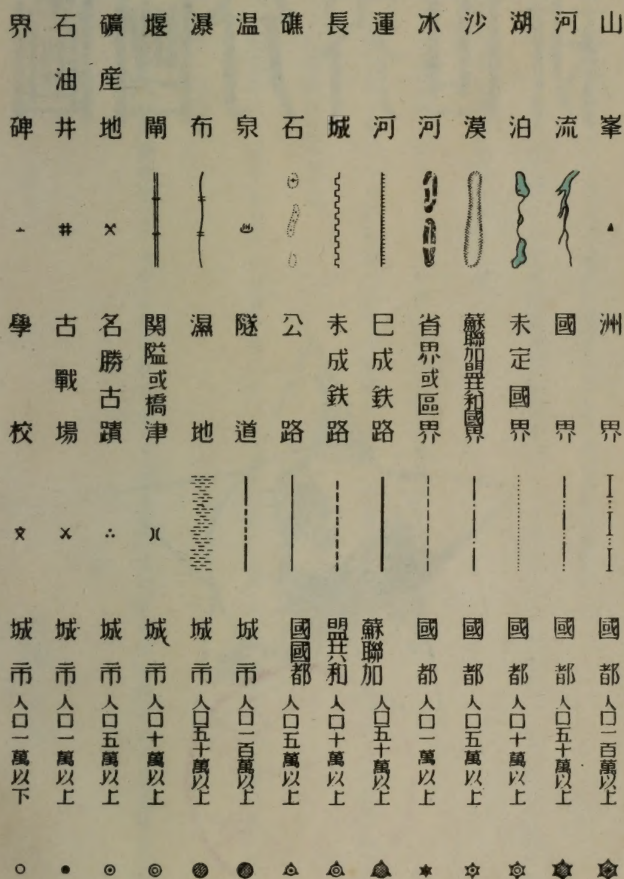 山峯
河流
湖泊
沙漠
冰河
運河
長城
礁石
温泉
瀑布
堰閘
礦産地
石油井
界碑
洲界
國界
未定國界
蘇聯加盟共和國界
省界或區界
巳成鉄路
未成鉄路
公路
隧道
濕地
関隘或橋津
名勝古蹟
古戰場
學校
國都人口一百萬以上
國都人口五十萬以上
國都人口十萬以上
國都人口五萬以上
國都人口一萬以上
蘇聯加盟共和國國都
人口五十萬以上
人口十萬以上
人口五萬以上
城市人口一百萬以上
城市人口五十萬以上
城市人口十萬以上
城市人口五萬以上
城市人口一萬以上
城市人口一萬以下